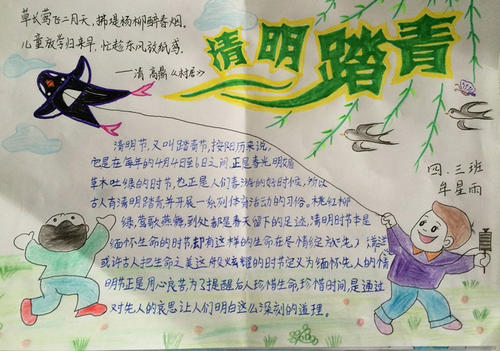 草长莺飞二月天，拂堤杨柳醉春烟。
儿童放学归来早，忙趁东风放纸鸢。
——清 高鼎《村居》
清明踏青
四、三班
牟星雨
清明节，又叫踏青节，按阳历来说，
它是在每年的4月4日至6日之间，正是春光明媚
草木吐绿的时节，也正是人们春游的好时候，所以
古人有清明踏青并开展一系列体育活动的习俗。桃红柳
绿，莺歌燕舞，到处都是春天留下的足迹，清明时节本是
缅怀生命的时节，却有这样的生命在尽情绽试先）
或许古人把生命之美这般炫耀的时节定义为缅怀先人的情
明节正是用心良苦为了提醒后人珍惜生命，珍惜时间，是通过
对先人的哀思让人们明白这么深刻的道理。